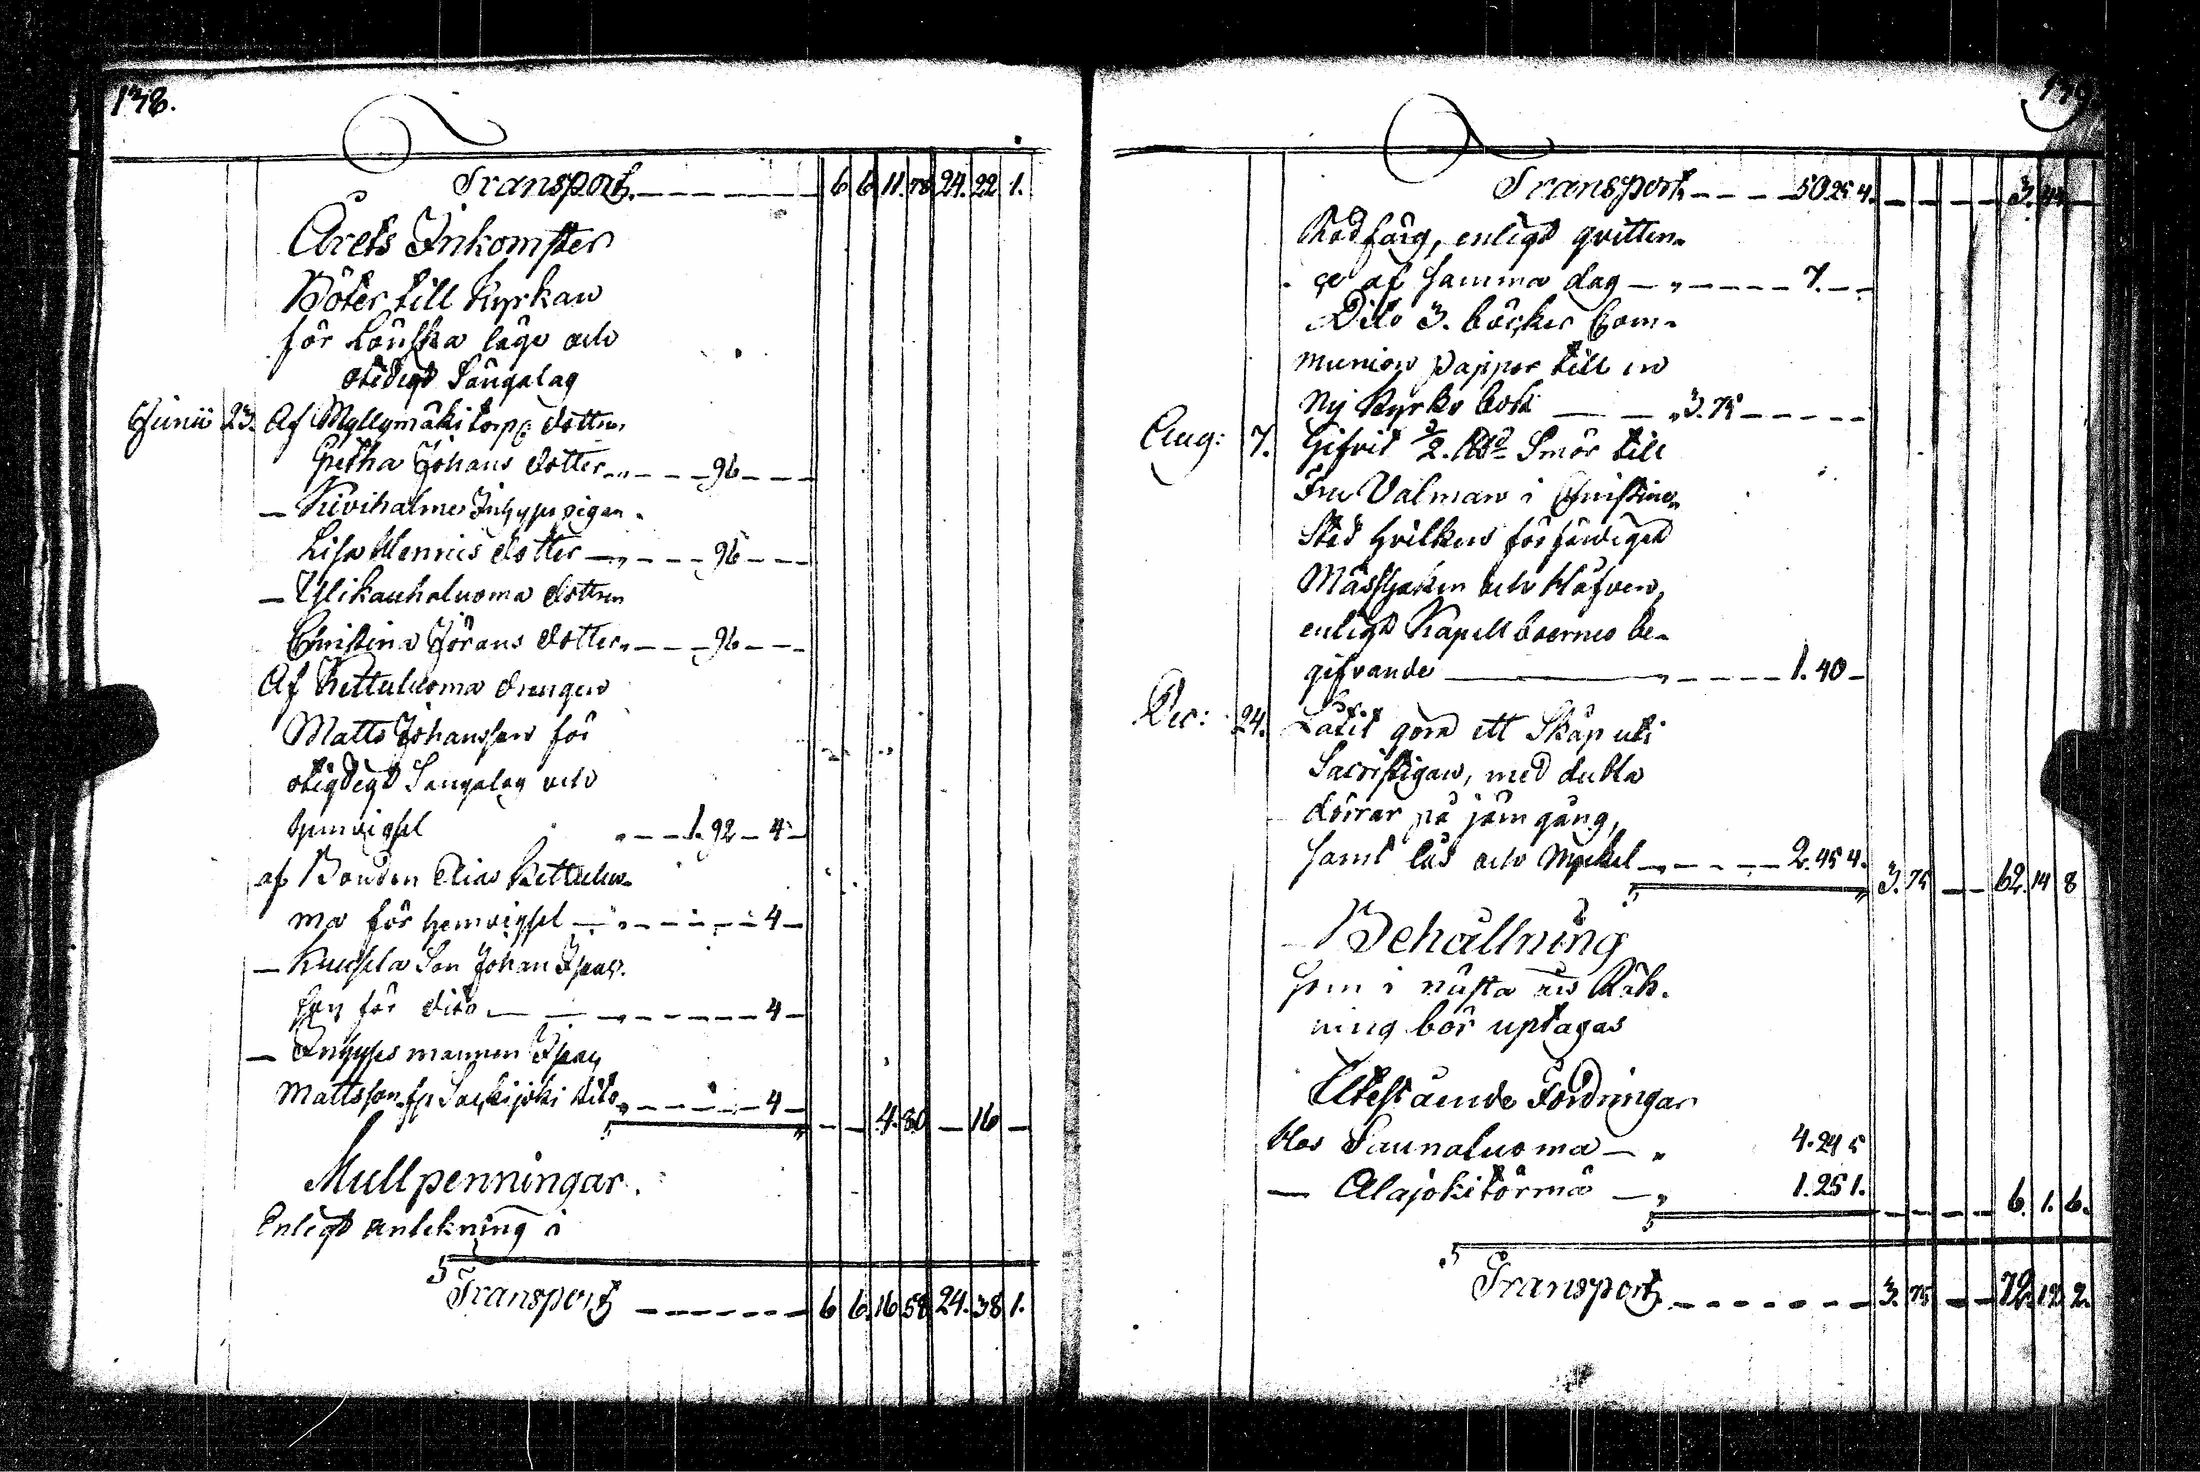 138.
Transport. 6 6 11. 78 24. 22 1.
Årets Inkomster
Böter till Kyrkan
för Lönska läge och
otidigt Sängalag
Junii 23. Af Myllymäki torp: dottren
Gretha Johans dotter 96
— Kiviholmes Inhyses pigan
Lisa Henrics dotter 96
— Ylikauhaluoma dottren
Christina Jörans dotter 96
Af Kettuluoma drengen
Matts Johansson för
otigdigt Sangalag och
hemvigsel 1. 92 4
af Bonden Elias Kettuluo-
ma för hemvigsel 4
— Son Johan Isacs-
son för dito 4
— Inhyses mannen Isac
Mattsson fr. dito 4
4. 80 — 16 —
Mullpenningar.
Enligt antekning i
Transport 6 6. 16 58 24. 38 1.
139.
Transport 50. 25 4. 3. 44
Rödfärg, enligt qvitten-
ce af samma dag 7.
Dito 3. böcker Com-
munion papper till en
Ny Kyrko bok 3. 75
Aug: 7. Gifvit ½. Smör till
Fru Valman i Christine-
stad hvilken förfärdigat
Mässhaken och Håfven,
enligt Kapellboernes be-
gifvande 1. 40
Dec: 24. Låtit göra ett Skåp uti
Sacristigan, med dubla
dörrar på järn gång,
samt lås och Nyckel 2. 45 4.
3. 75 — — 62. 14 8
Behållning
som i nästa års Räk-
ning bör uptagas
Utestående Fordringar
Hos Saunaluoma 4. 24 5
— Alajokitörmä 1. 25 1.
6. 1. 6.
Transport 3. 75 — — 72. 12 2.